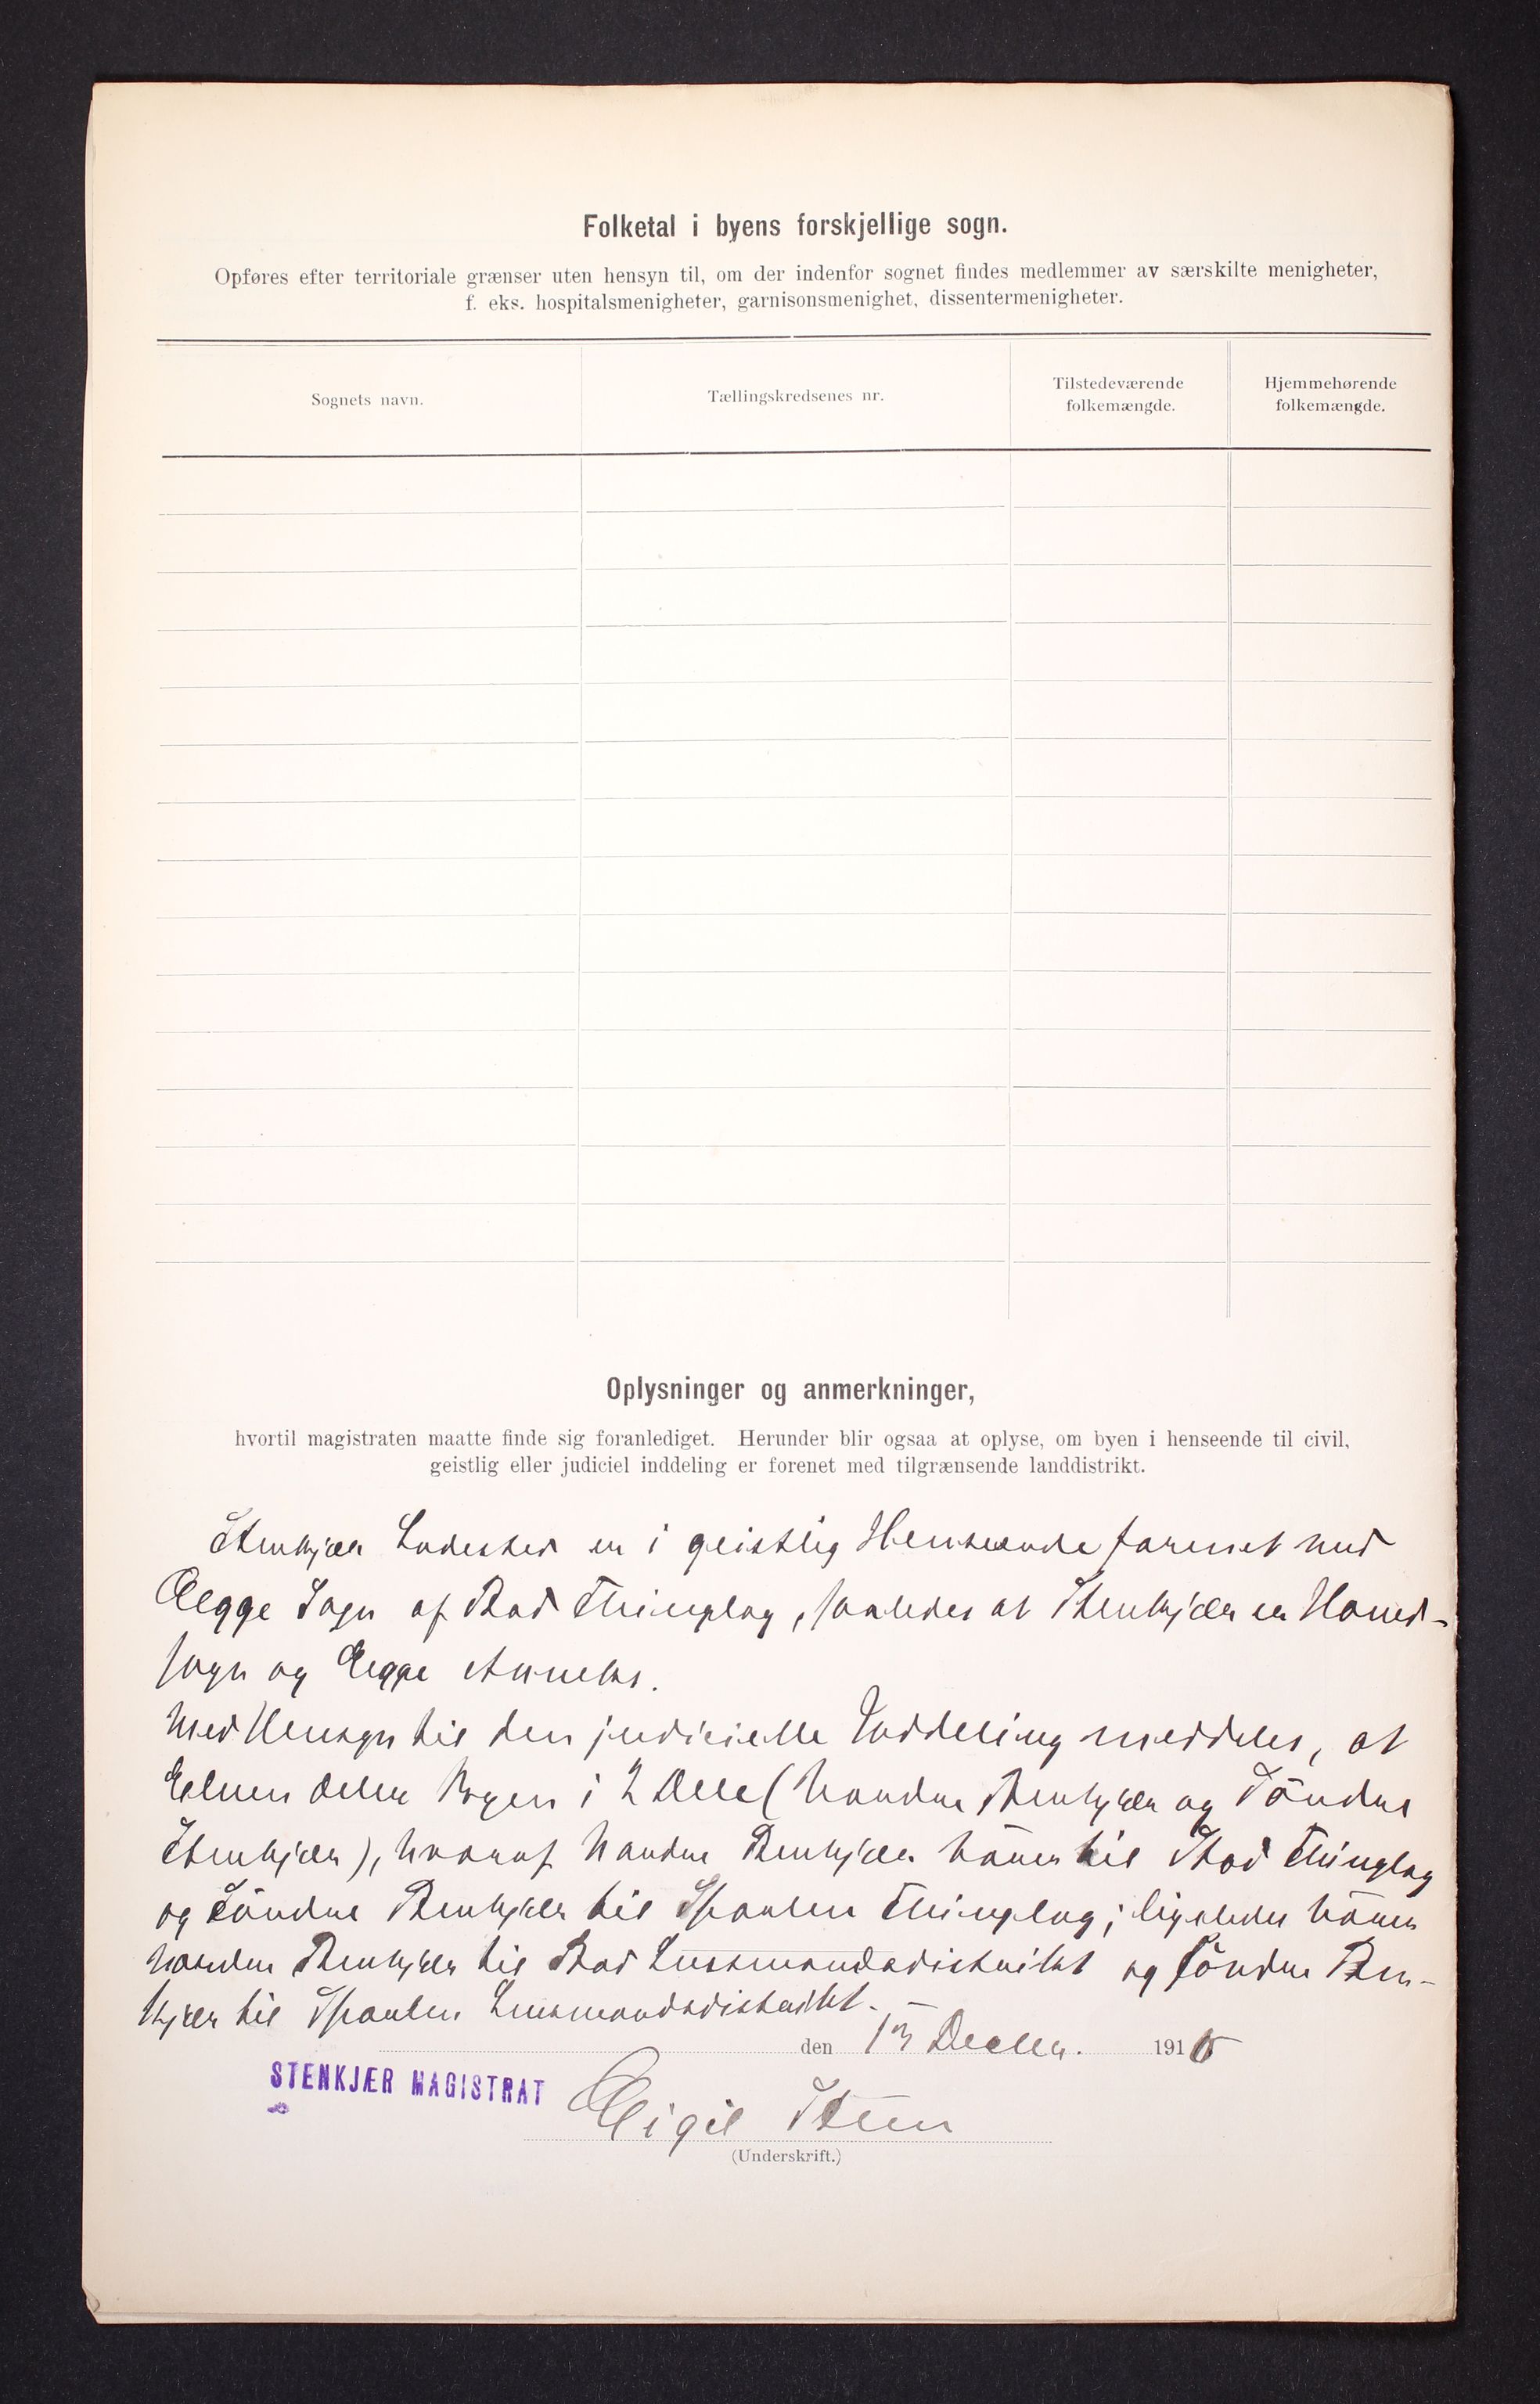 Folketal i byens forskjellige sogn.
Opføres efter territoriale grænser uten hensyn til, om der indenfor sognet findes medlemmer av særskilte menigheter,
f. eks. hospitalsmenigheter, garnisonsmenighet, dissentermenigheter.
Sognets navn.
Tællingskredsenes nr.
Tilstedeværende
folkemængde.
Hjemmehørende
folkemængde.
Oplysninger og anmerkninger,
hvortil magistraten maatte finde sig foranlediget. Herunder blir ogsaa at oplyse, om byen i henseende til civil,
geistlig eller judiciel inddeling er forenet med tilgrænsende landdistrikt.
Stenkjær Ladested er i geistlig Henseende forenet med
Eegge Sogn af Stod Thinglag, saaledes at Stenkjær er Hoved-
sogn og Eegge Anneks.
Med Hensyn til den judicielle Inddeling meddeles, at
Elven deler Byen i 2 Dele (Nordre Stenkjær og Söndre
Stenkjær), hvoraf Nordre Stenkjær hörer til Stod Thinglag
og Söndre Stenkjær til Sparbu Thinglag; ligeledes hörer
Nordre Stenkjær til Stod Lensmandsdistrikt og Söndre Sten-
kjær til Sparbu Lensmandsdistrikt.
den 13 Decbr. 1910
STENKJÆR MAGISTRAT
Eigil Steen
(Underskrift.)